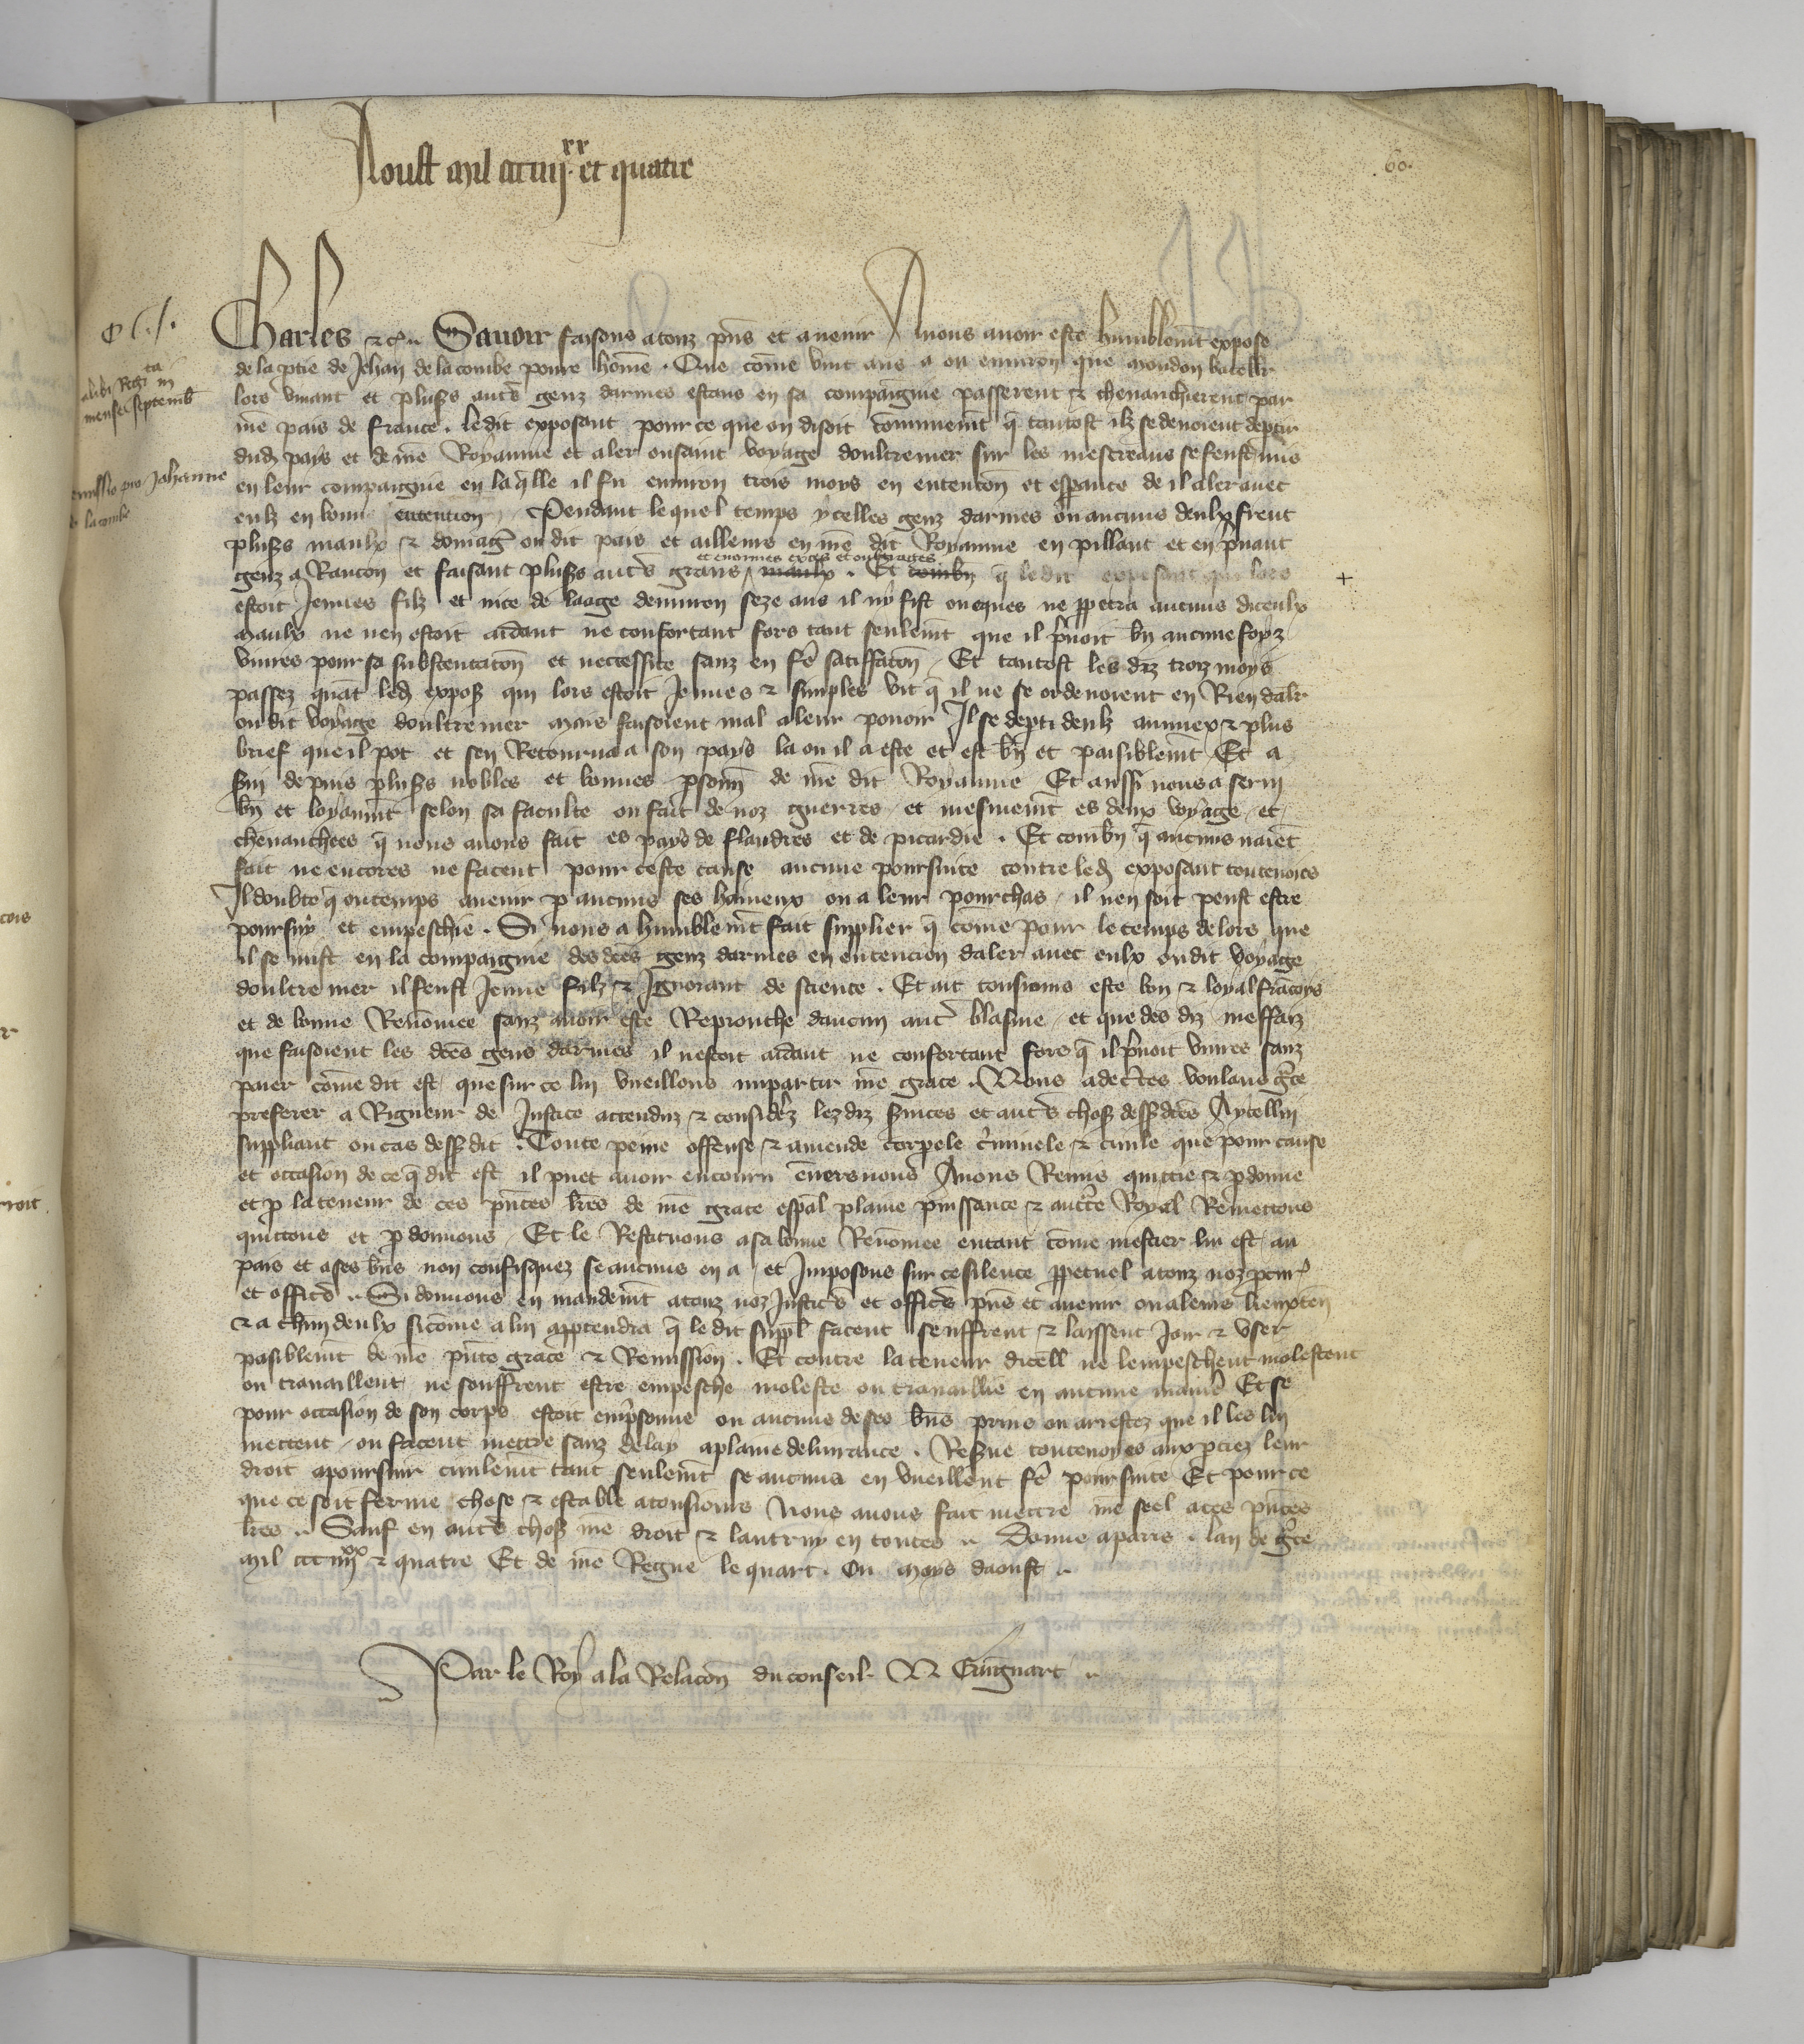 Aoust mil ccc iiij.xx et quatre
60.
C L j.
alibi Regrta in
mense septemb
Remissio pro Johanne
de lacombe
Charles &c. Savoir faisons a touz pns et avenir A nous avoir este humblemt expose
de la ptie de Jehan de lacombe povre home. Que come vint ans a ou environ que mondon
lors vivant et plusrs autrs genz darmes estans en sa compaignie passerent & chevaucherent par
nre pais de france. ledit exposant pour ce que on disoit communemt q tantost ilz se devoient deptir
dud pays et de nre Royaume et aler ou saint voyage doultremer sur les mescreans se feust mis
en leur compaignie en laqlle il fu environ trois moys en entencon et espance de il aler avec
eulz en bonne entention. Pendant lequel temps ycelles genz darmes ou aucuns deulx firent
plusrs maulx & domages ou dit pais et ailleurs en nre dit Royaume en pillant et en pnant
genz a Rancon et faisant plusrs autrs grans et enormes exces et oultrages maulx. Et combn q ledit exposant qui lors +
estoit Jeunes filz et nice de laage denviron seze ans il ny fist oncques ne ppetra aucuns diceulx
maulx ne nen estoit aidant ne confortant fors tant seulemt que il prnoit bn aucune foyz
vivres pour sa substentacon et neccessite sanz en fe satiffacon. Et tantost les diz troiz moys
passez quat led expos qui lors estoit Jeunes & simples vit q il ne se ordenoient en Rien daler
ou dit voyage doultre mer mais faisoient mal a leur povoir Il se depti deulz au mieux & plus
brief que il pot et sen Retourna a son pays la ou il a este et est bn et paisiblemt Et a
svi depuis plusrs nobles et bonnes psonn de nre dit Royaume Et aussi nous a servi
bn et loyaumt selon sa faculte ou fait de noz guerres et mesmemt es deux voyage et
chevauchees q nous avons fait es pays de flandres et de picardie. Et combn q aucuns naiet
fait ne encores ne facent pour ceste cause aucune poursuite contre led exposant toutevoies
Il doubte q ou temps avenir p aucuns ses haineux ou a leur pourchas il nen soit peust estre
poursuy et empeschie. Si nous a humblemt fait supplier q come pour le temps de lors que
il se mist en la compaignie des dces genz darmes en entencion daler avec eulx ou dit voyage
doultre mer il feust Jeune filz & Ignorant de science. Et ait tousiours este bon & loyal francoys
et de bonne Renomee sanz avoir este Reprouche daucun autr blasme et que des diz meffaiz
que faisoient les dces gens darmes il nestoit aidant ne confortant fors q il prnoit vivres sanz
paier come dit est que sur ce lui vueillons impartir nre grace. Nous adecrtes voulans grce
preferer a Rigueur de Justice attenduz & considerz lez diz svices et autrs chos dessdces A ycellui
suppliant ou cas dessdit. Toute peine offense & amende corpele criminele & civile que pour cause
et occasion de ce q dit est il puet avoir encouru envers nous Avons Remis quictie & pdonne
et p la teneur de ces pntes lres de nre grace espal plaine puissance & auctte Royal Remettons
quictons et pdonnons. Et le Restituons a sa bonne Renomee en tant come mestier lui est au
pais et a ses bns non confisquez se aucuns en a et Imposons sur ce silence ppetuel a touz noz pcur
et officrs. Si donnons en mandemt a touz noz Justicrs et officrs pns et avenir ou a leurs lieuxten
& a chun deulx sicome a lui apptendra q ledit suppl facent seuffrent & laissent Joir & user
pasiblemt de nre pnte grace & Remission. Et contre la teneur dicell ne lempeschent molestent
ou travaillent ne souffrent estre empesche moleste ou travaillie en aucune maniere Et se
pour occasion de son corps estoit emprsonne ou aucuns de ses bns prins ou arrestez que il les lui
mettent ou facent mettre sanz delay a plaine delivrance. Resve toutevoyes aux ptiez leur
droit a poursuir civilemt tant seulemt se aucuns en vueillent fe poursuite Et pour ce
que ce soit ferme chose & estable a tousiours Nous avons fait mettre nre seel a ces pntes
lres. Sauf en autrs chos nre droit & lautruy en toutes. Donne a paris. lan de grce
mil ccc iiijxx & quatre Et de nre Regne le quart. Ou moys daoust.
Par le Roy a la Relacon du conseil. N Guingnart.